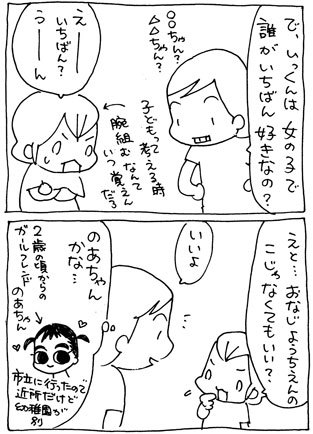 で、いっくんは女の子で
誰がいちばん好きなの?
○○ちゃん?
△△ちゃん?
子どもって考える時
腕組むなんて
いつ覚えんだろ
えーー
いちばん?
うーーん
えと…おなじようちえんの
こじゃなくてもいい?
いいよ
のあちゃん
かな…
2歳の頃からの
ガールフレンド
のあちゃん
市立に行ったので
近所だけど
幼稚園が
別